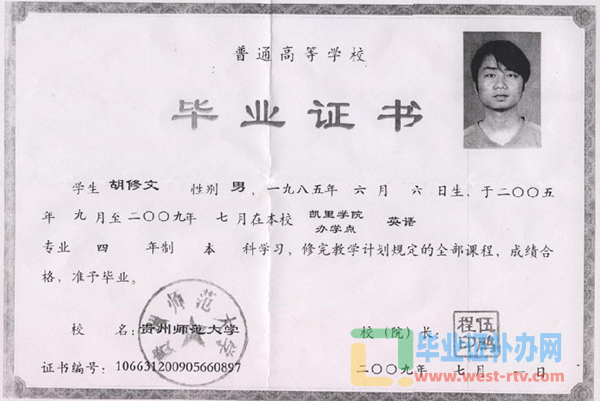 普通高等学校
毕业证书
学生 胡修文 性别 男，一九八五年 六 月 六 日生，于二〇〇五
年 九 月至二〇〇九年 七 月在本校 凯里学院办学点 英语
专业 四 年制 本 科学习，修完教学计划规定的全部课程，成绩合
格，准予毕业。
校 名：贵州师范大学
校（院）长：
证书编号：106631200905660897
二〇〇九年 七 月 一 日
贵州师范大学
毕业证补办网
www.west-rtv.com